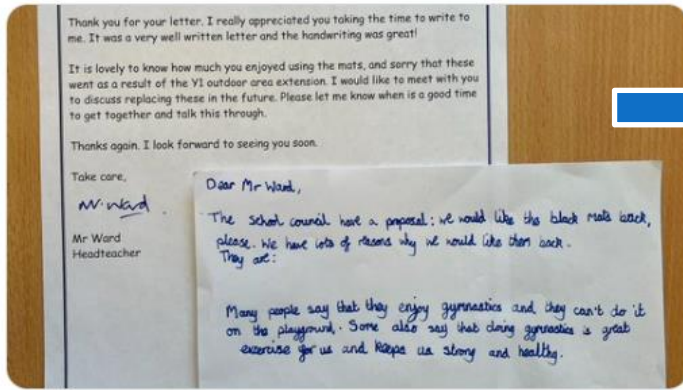 Thank you for your letter. I really appreciated you taking the time to write to
me. It was a very well written letter and the handwriting was great!
It is lovely to know how much you enjoyed using the mats, and sorry that these
went as a result of the Y1 outdoor area extension. I would like to meet with you
to discuss replacing these in the future. Please let me know when is a good time
to get together and talk this through.
Thanks again. I look forward to seeing you soon.
Take care,
Mr. Ward
Mr Ward
Headteacher
Dear Mr Ward,
The school council have a proposal: we would like the black mats back,
please. We have lots of reasons why we would like them back.
They are:
Many people say that they enjoy gymnastics and they can't do it
on the playground. Some also say that doing gymnastics is great
exercise for us and keeps us strong and healthy.